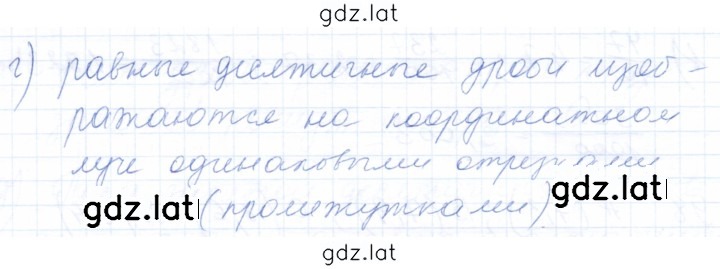 gdz.lat
г) равные десятичные дроби изоб-
ражаются на координатном
луче одинаковыми отрезками
gdz.lat (промежутками).
gdz.lat